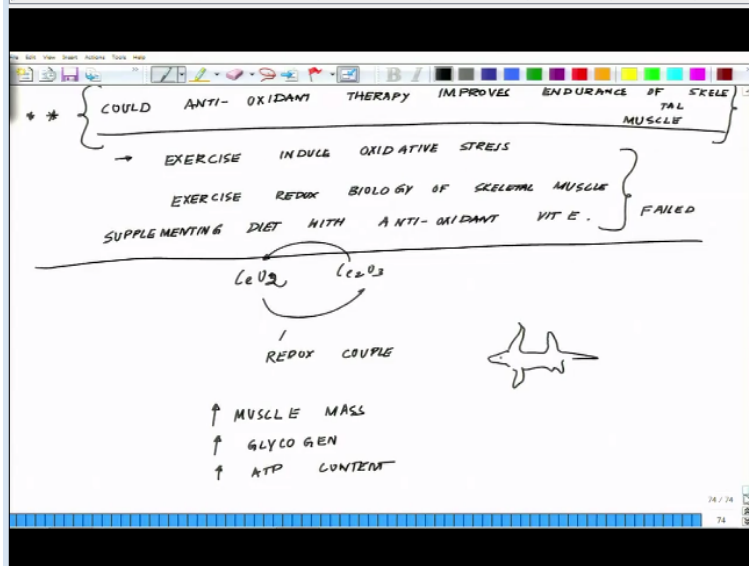 File Edit View Insert Actions Tools Help
** { COULD ANTI- OXIDANT THERAPY IMPROVES ENDURANCE OF SKELE
TAL
MUSCLE
→ EXERCISE INDUCE OXIDATIVE STRESS
EXERCISE REDOX BIOLOGY OF SKELETAL MUSCLE
SUPPLEMENTING DIET WITH ANTI-OXIDANT VIT E. } FAILED
CeO2 Ce2O3
REDOX COUPLE
↑ MUSCLE MASS
↑ GLYCOGEN
↑ ATP CONTENT
74 / 74
74